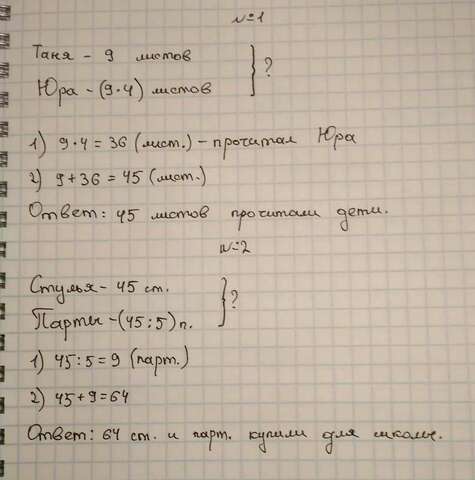 №1
Таня - 9 листов
Юра - (9·4) листов } ?
1) 9·4 = 36 (лист.) - прочитал Юра
2) 9+36 = 45 (лист.)
Ответ: 45 листов прочитали дети.
№2
Стулья - 45 ст.
Парты - (45:5) п. } ?
1) 45:5 = 9 (парт.)
2) 45+9=64
Ответ: 64 ст. и парт. купили для школы.